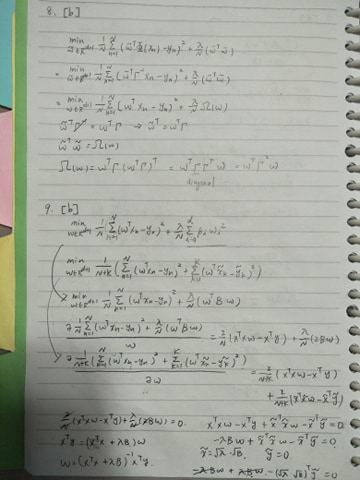 8. [b]
min_{w̃∈R^{d+1}} 1/N Σ_{n=1}^{N} (w̃^T Φ(x_n) - y_n)² + λ/N (w̃^T w̃)
= min_{w̃∈R^{d+1}} 1/N Σ_{n=1}^{N} (w̃^T Γ^{-1} x_n - y_n)² + λ/N (w̃^T w̃)
= min_{w∈R^{d+1}} 1/N Σ_{n=1}^{N} (w^T x_n - y_n)² + λ/N Ω(w)
w̃^T Γ^{-1} = w^T ⇒ w̃^T = w^T Γ
w̃^T w̃ = Ω(w)
Ω(w) = w^T Γ (w^T Γ)^T = w^T Γ Γ^T w = w^T Γ² w
diagonal
9. [b]
min_{w∈R^{d+1}} 1/N Σ_{n=1}^{N} (w^T x_n - y_n)² + λ/N Σ_{i=0}^{d} β_i w_i²
min_{w∈R^{d+1}} 1/(N+K) (Σ_{n=1}^{N} (w^T x_n - y_n)² + Σ_{k=1}^{K} (w^T x̃_k - ỹ_k)²)
min_{w∈R^{d+1}} 1/N Σ_{n=1}^{N} (w^T x_n - y_n)² + λ/N (w^T B w)
∂ 1/N Σ_{n=1}^{N} (w^T x_n - y_n)² + λ/N (w^T B w) / w = 2/N (x^T x w - x^T y) + λ/N (2Bw)
∂ 1/(N+K) (Σ_{n=1}^{N} (w^T x_n - y_n)² + Σ_{k=1}^{K} (w^T x̃_n - ỹ_k)²) / ∂w = 2/(N+K) (x^T x w - x^T y)
+ 2/(N+K) (x̃^T x̃ w - x̃^T ỹ)
2/N (x^T x w - x^T y) + λ/N (2Bw) = 0. x^T x w - x^T y + x̃^T x̃ w - x̃^T ỹ = 0
x^T y = (x^T x + λB) w -λBw + x̃^T x̃ w - x̃^T ỹ = 0
w = (x^T x + λB)^{-1} x^T y. x̃ = √λ · √B, ỹ = 0
-λBw + λBw - (√λ · √B)^T ỹ = 0